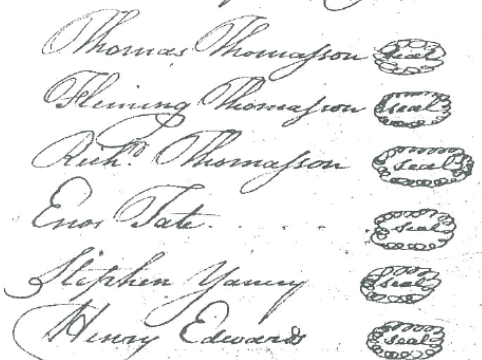 Thomas Thomasson seal
Fleming Thomasson seal
Richd. Thomasson seal
Enos Tate. seal
Stephen Yancey seal
Henry Edwards seal